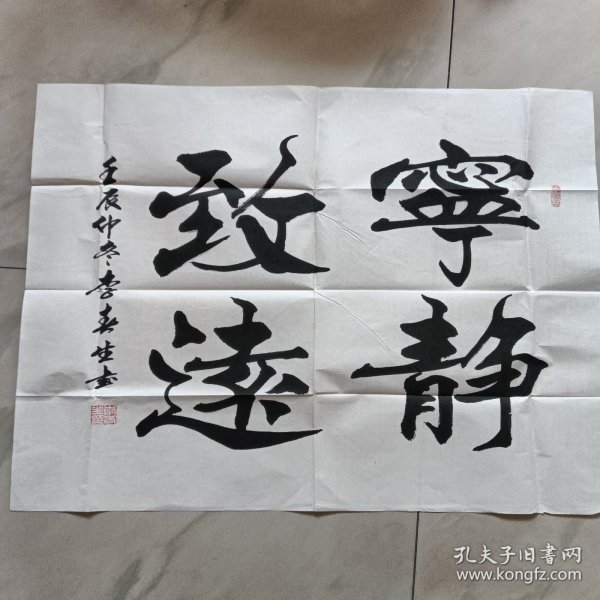 寧靜
致遠
壬辰仲冬李春生书
孔夫子旧書网
www.kongfz.com